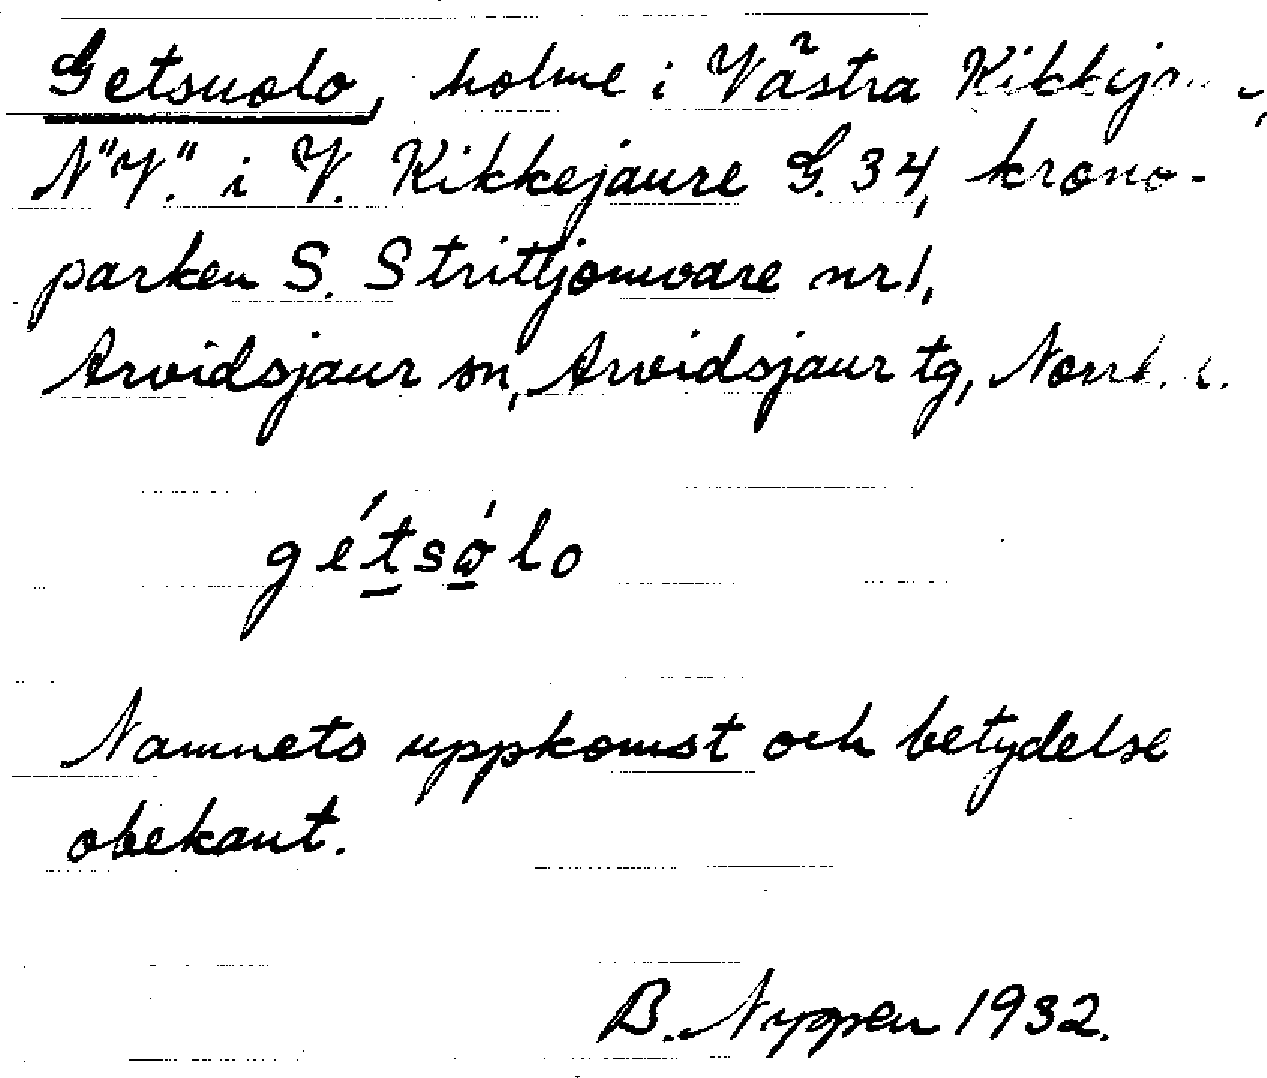 Getsuolo, holme i Västra
N"V." i V. Kikkejaure G. 34, krono-
parken S. Strittjomvare nr 1,
Arvidsjaur sn, Arvidsjaur tg,
gétsålo
Namnets uppkomst och betydelse
obekant.
B. Nyppen 1932.